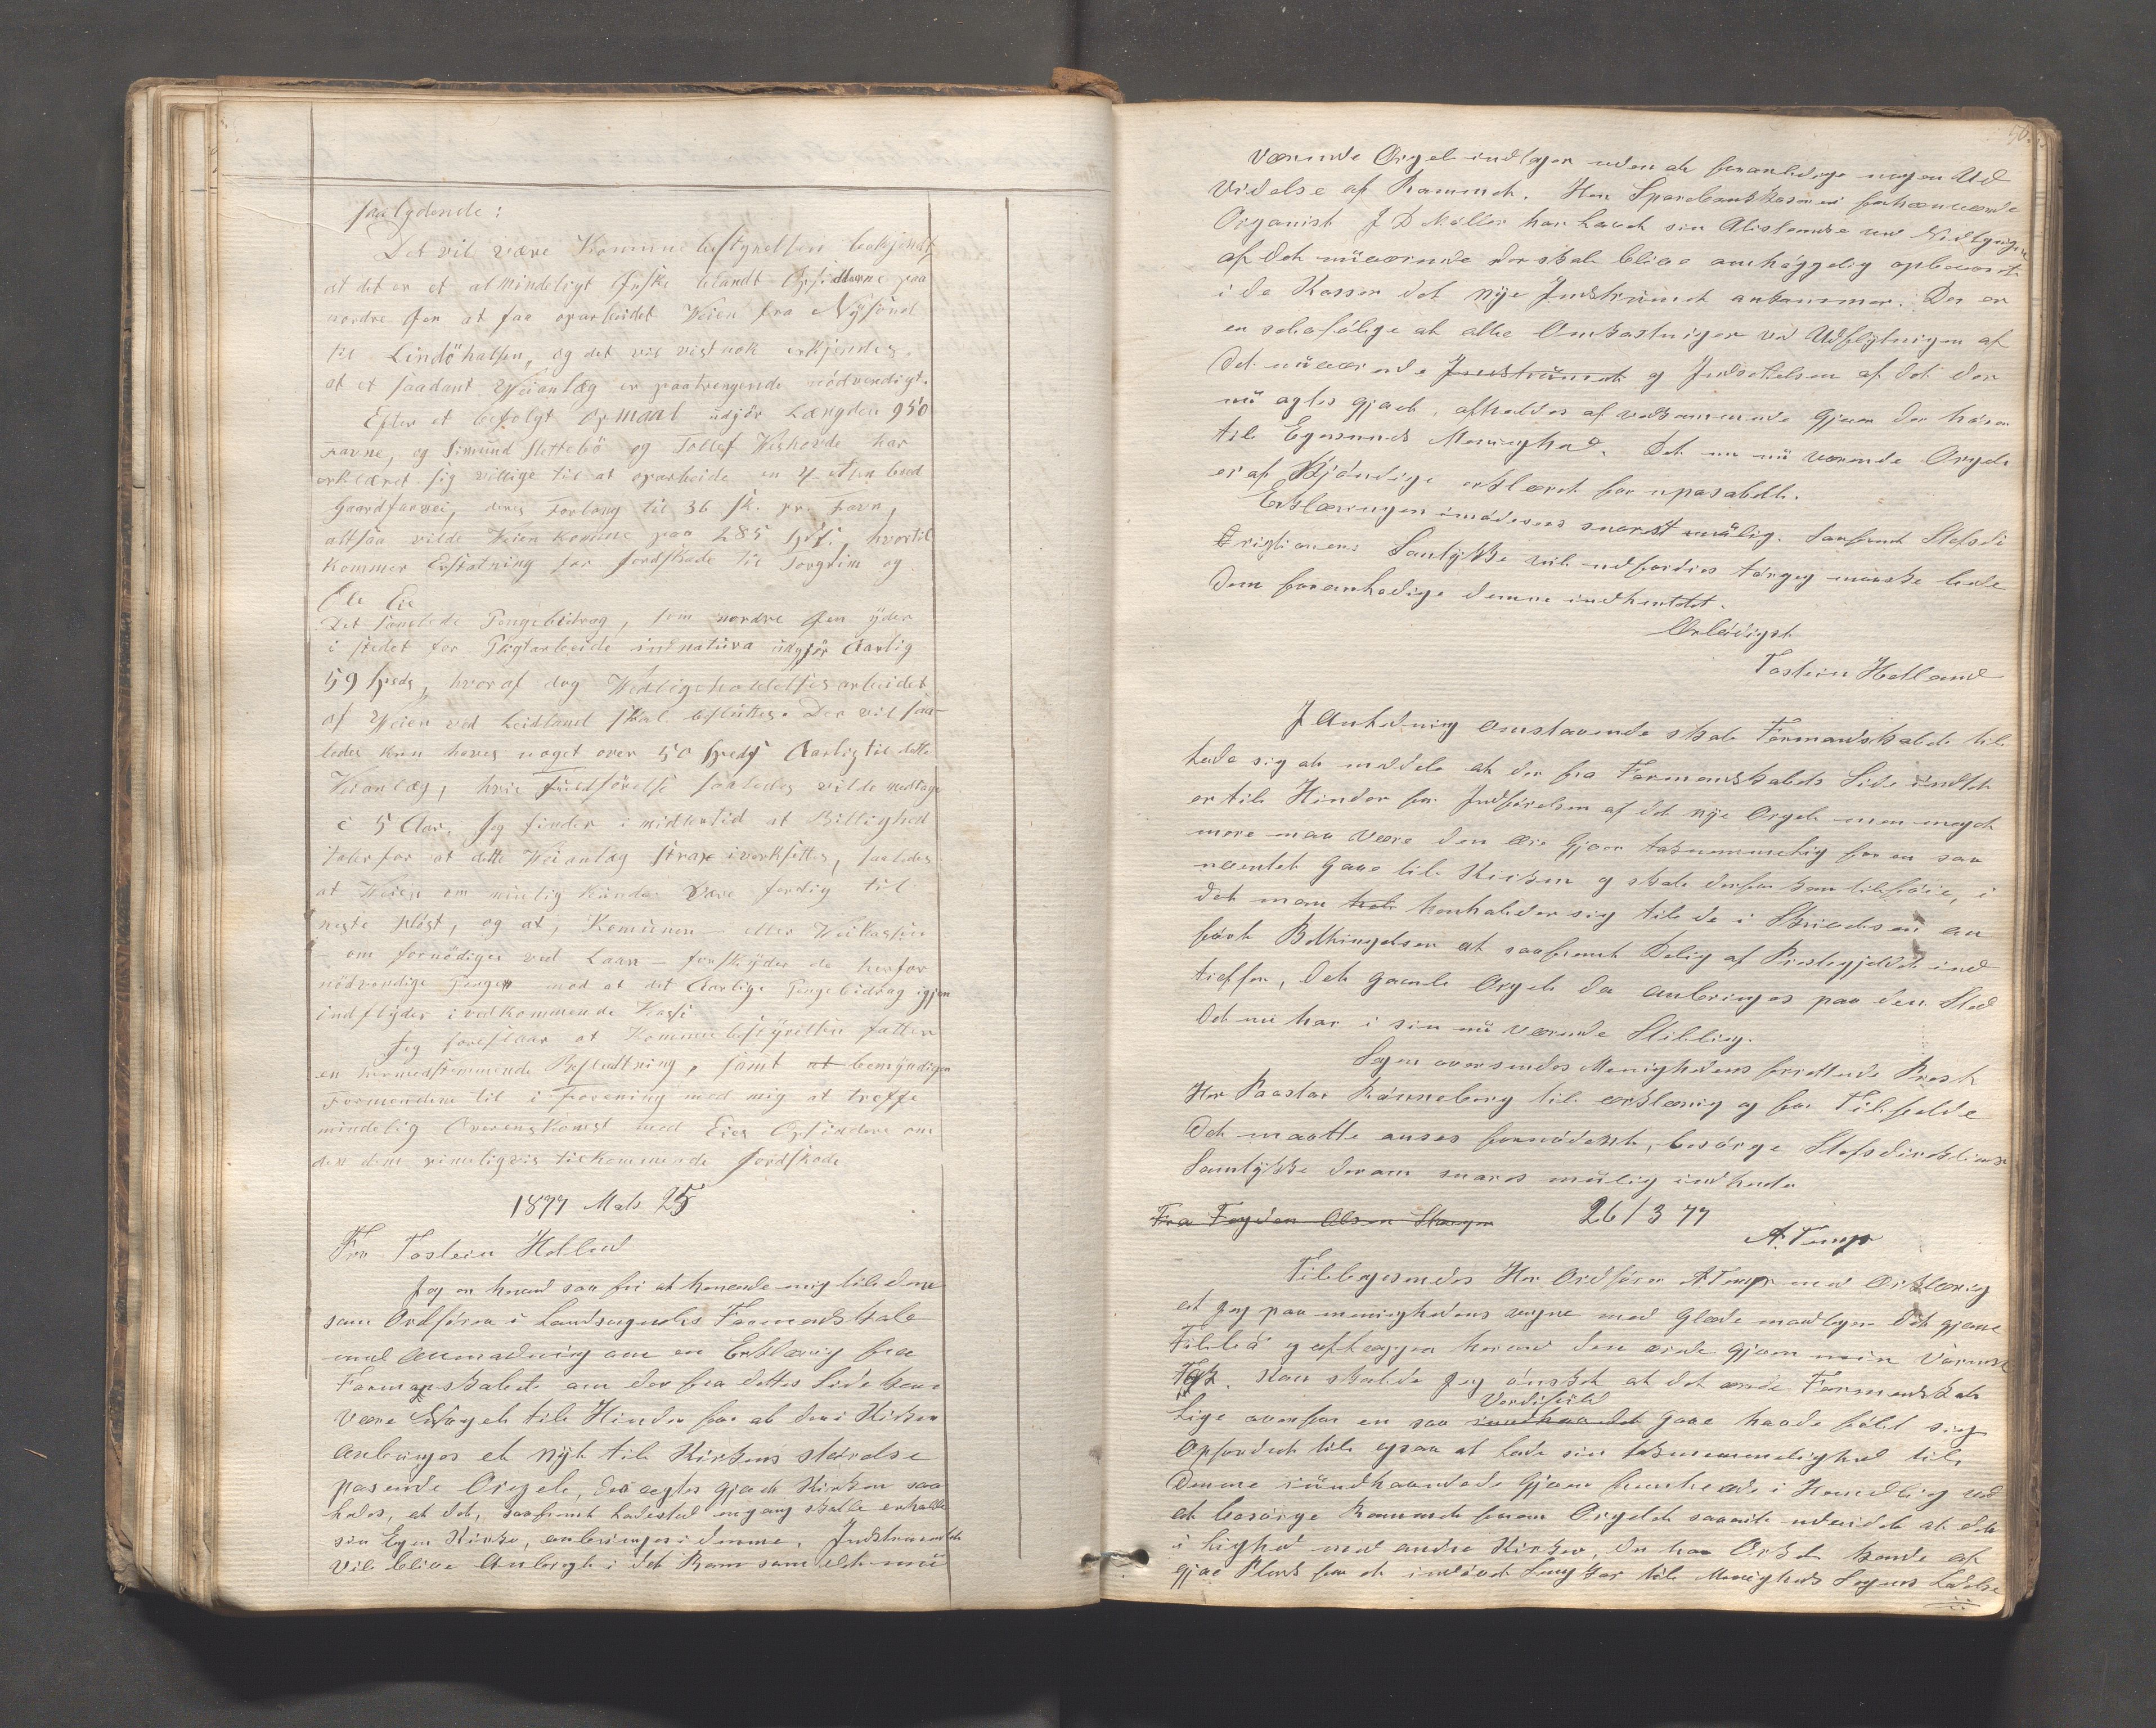 saalydende:
Det vil være Kommunebestyrelsen bekjendt
at det er et almindeligt Ønske blandt Opsidderne paa
nordre Øen at faa oparbeidet Veien fra Nysund
til Lindöhalsen, og det vil vistnok erkjendes
at et saadant Veianlæg er paatrengende nödvendigt.
Efter et befolgt Opmaal udgjör Længden 950
Favne, og Simund Slettebö og Tollef har
erklæret sig villige til at oparbeide en 4 Alen bred
Gaardfarvei, deres Forlang til 36 sk. pr. Favn,
altsaa vilde Veien komme paa 285 Spd, hvortil
kommer Erstatning for Jordskade til Torgrim og
Ole Eie
Det samlede Pengebidrag, som nordre Øen yder
i stedet for Pligtarbeide in natura udgjör Aarlig
59 Speds, hvoraf dog Vedligeholdelsesarbeidet
af Veien ved Leidland skal besluttes. Der vil saa-
ledes kun haves noget over 50 Speds Aarlig til dette
Veianlæg, hvis Fuldförelse saaledes vilde medtage
c 5 Aar. Jeg finder imidlertid at Billighed
taler for at dette Veianlæg strax iverksættes, saaledes
at Veien om mulig kunde være ferdig til
neste Höst, og at, Komunen – eller Veikassen
– om fornödiget ved Laan – forskyder de herfor
nödvendige Penger mod at det Aarlige Pengebidrag igjen
indflyder i vedkommende Kasse
Jeg foreslaar at Kommunebestyrelsen fatter
en hermedstemmende Beslutning, samt at bemyndiger
Formendene til i Forening med mig at treffe
mindelig Overenskomst med Eies Opsiddere om
den dem rimeligvis tilkommende Jordskade
1877 Mats 25
Fra Tostein Helland
Jeg er herved saa fri at henvende mig til dem
som Ordförer i Landsognets Formandskab
med Anmodning om en Erklæring fra
Formanskabet om der fra dettes Side kan
være Noget til Hinder for at der i Kirken
Anbringes et nyt til Kirkens störelse
pasende Orgel, der agtes gjeves Kirken saa
ledes, at det, saafremt Ladested engang skulle erholde
sin Egen Kirke, anbringes i denne. Instrumentet
vil blive Anbragt i det Rum som det nu
værende Orgel indtager uden at foranledige nogen Ud
videlse af Rummet. Herr Sparebankkaserer forhenværende
Organist J D Möller har lovet sin Assistance ved Nedtagnigen
af det nuværende der skal blive omhyggelig opbevart
i de Kasser det nye Instrument ankommer. Der er
en selvfölge at alle Omkostninger ved Udflytnigen af
det nuværende Instrument og Indsettelsen af det der
nu agtes gjevet, afholdes af vedkommende Giver der hörer
til Egersunds Menighed. Det nu nu værende Orgel
er af Kjöndige erklæret for upasabelt.
Erklæringen imödesees snarest mulig. Saafremt Stifsdi
rigtionens Samtykke vil udfordres törjeg maaske bede
Dem foranledige denne indhentet.
Ærbödigst
Tostein Helland
I Anledning omstaaende skal Formandskabet til
lade sig at meddele at der fra Formandskabets Side indtet
er til Hinder for Indförelsen af det nye Orgel men meget
mere maa være den ære Giver taknemmelig for en saa
nævntet Gave til Kirken og skal derfor kun tilföie, i
det man hol henholder sig til de i Skrivelsen an
förte Betingelsen at saafremt Delig af Prestegjeldet ind
treffer, det gamle Orgel da anbringes paa den Sted
det nu har i sin nu værende Stilling.
Sagen oversendes Menighedens forettende Prest
Her Paastor Rönneberg til erklærig og for Tilfelde
det maatte anses fornödent, besörge Stifsdirektionens
Samtykke derom snares mulig indhentet
Fra Fogden Olsen Stavanger 26/3 77
A. Tengs
Tilbagesendes Her Ordförer A Tengs med Erklærig
at jeg paa menighedens vegne med Glæde modtager det gjeve
tilbud og aflegger herved den ærede Giver min Varmeste
Tak. Kun skulde jeg önsket at det ærede Formandskab
Verdifuld
Lige overfor en saa rundhaandet Gave havde fölt sig
Opfordret til ogsaa at lade sin taknemmelighed til
denne rundhaandede Giver fremtræde i Handling ved
at besörge Rummet foran Orgelet saavit udvidet at det
i Lighed med andre Kirker, der har Orkel kunde af
gjve Plads for et indövet Sang Kor til Menigheds Sagens Ledelse